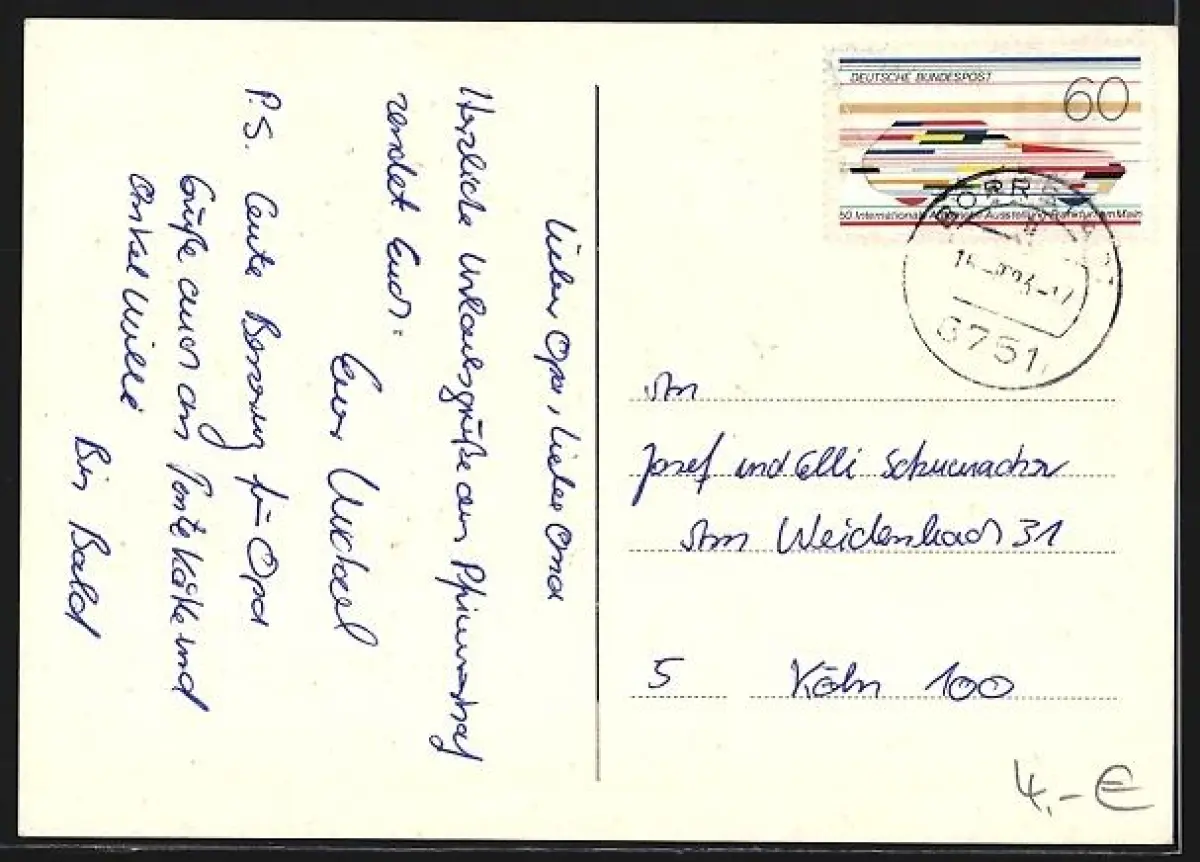 Lieber Opa, Liebe Oma
Herzliche Urlaubsgrüße aus
sendet Euch:
Euer Michael
P.S. Gute Besserung für Opa
Grüße auch an Tante Käthe und
Onkel Willi
Bis Bald
DEUTSCHE BUNDESPOST
60
50 Internationale Ausstellung Frankfurt am Main
8751
An
Josef und Elli Schumacher
Am Weidenbach 31
5 Köln 100
4,- €